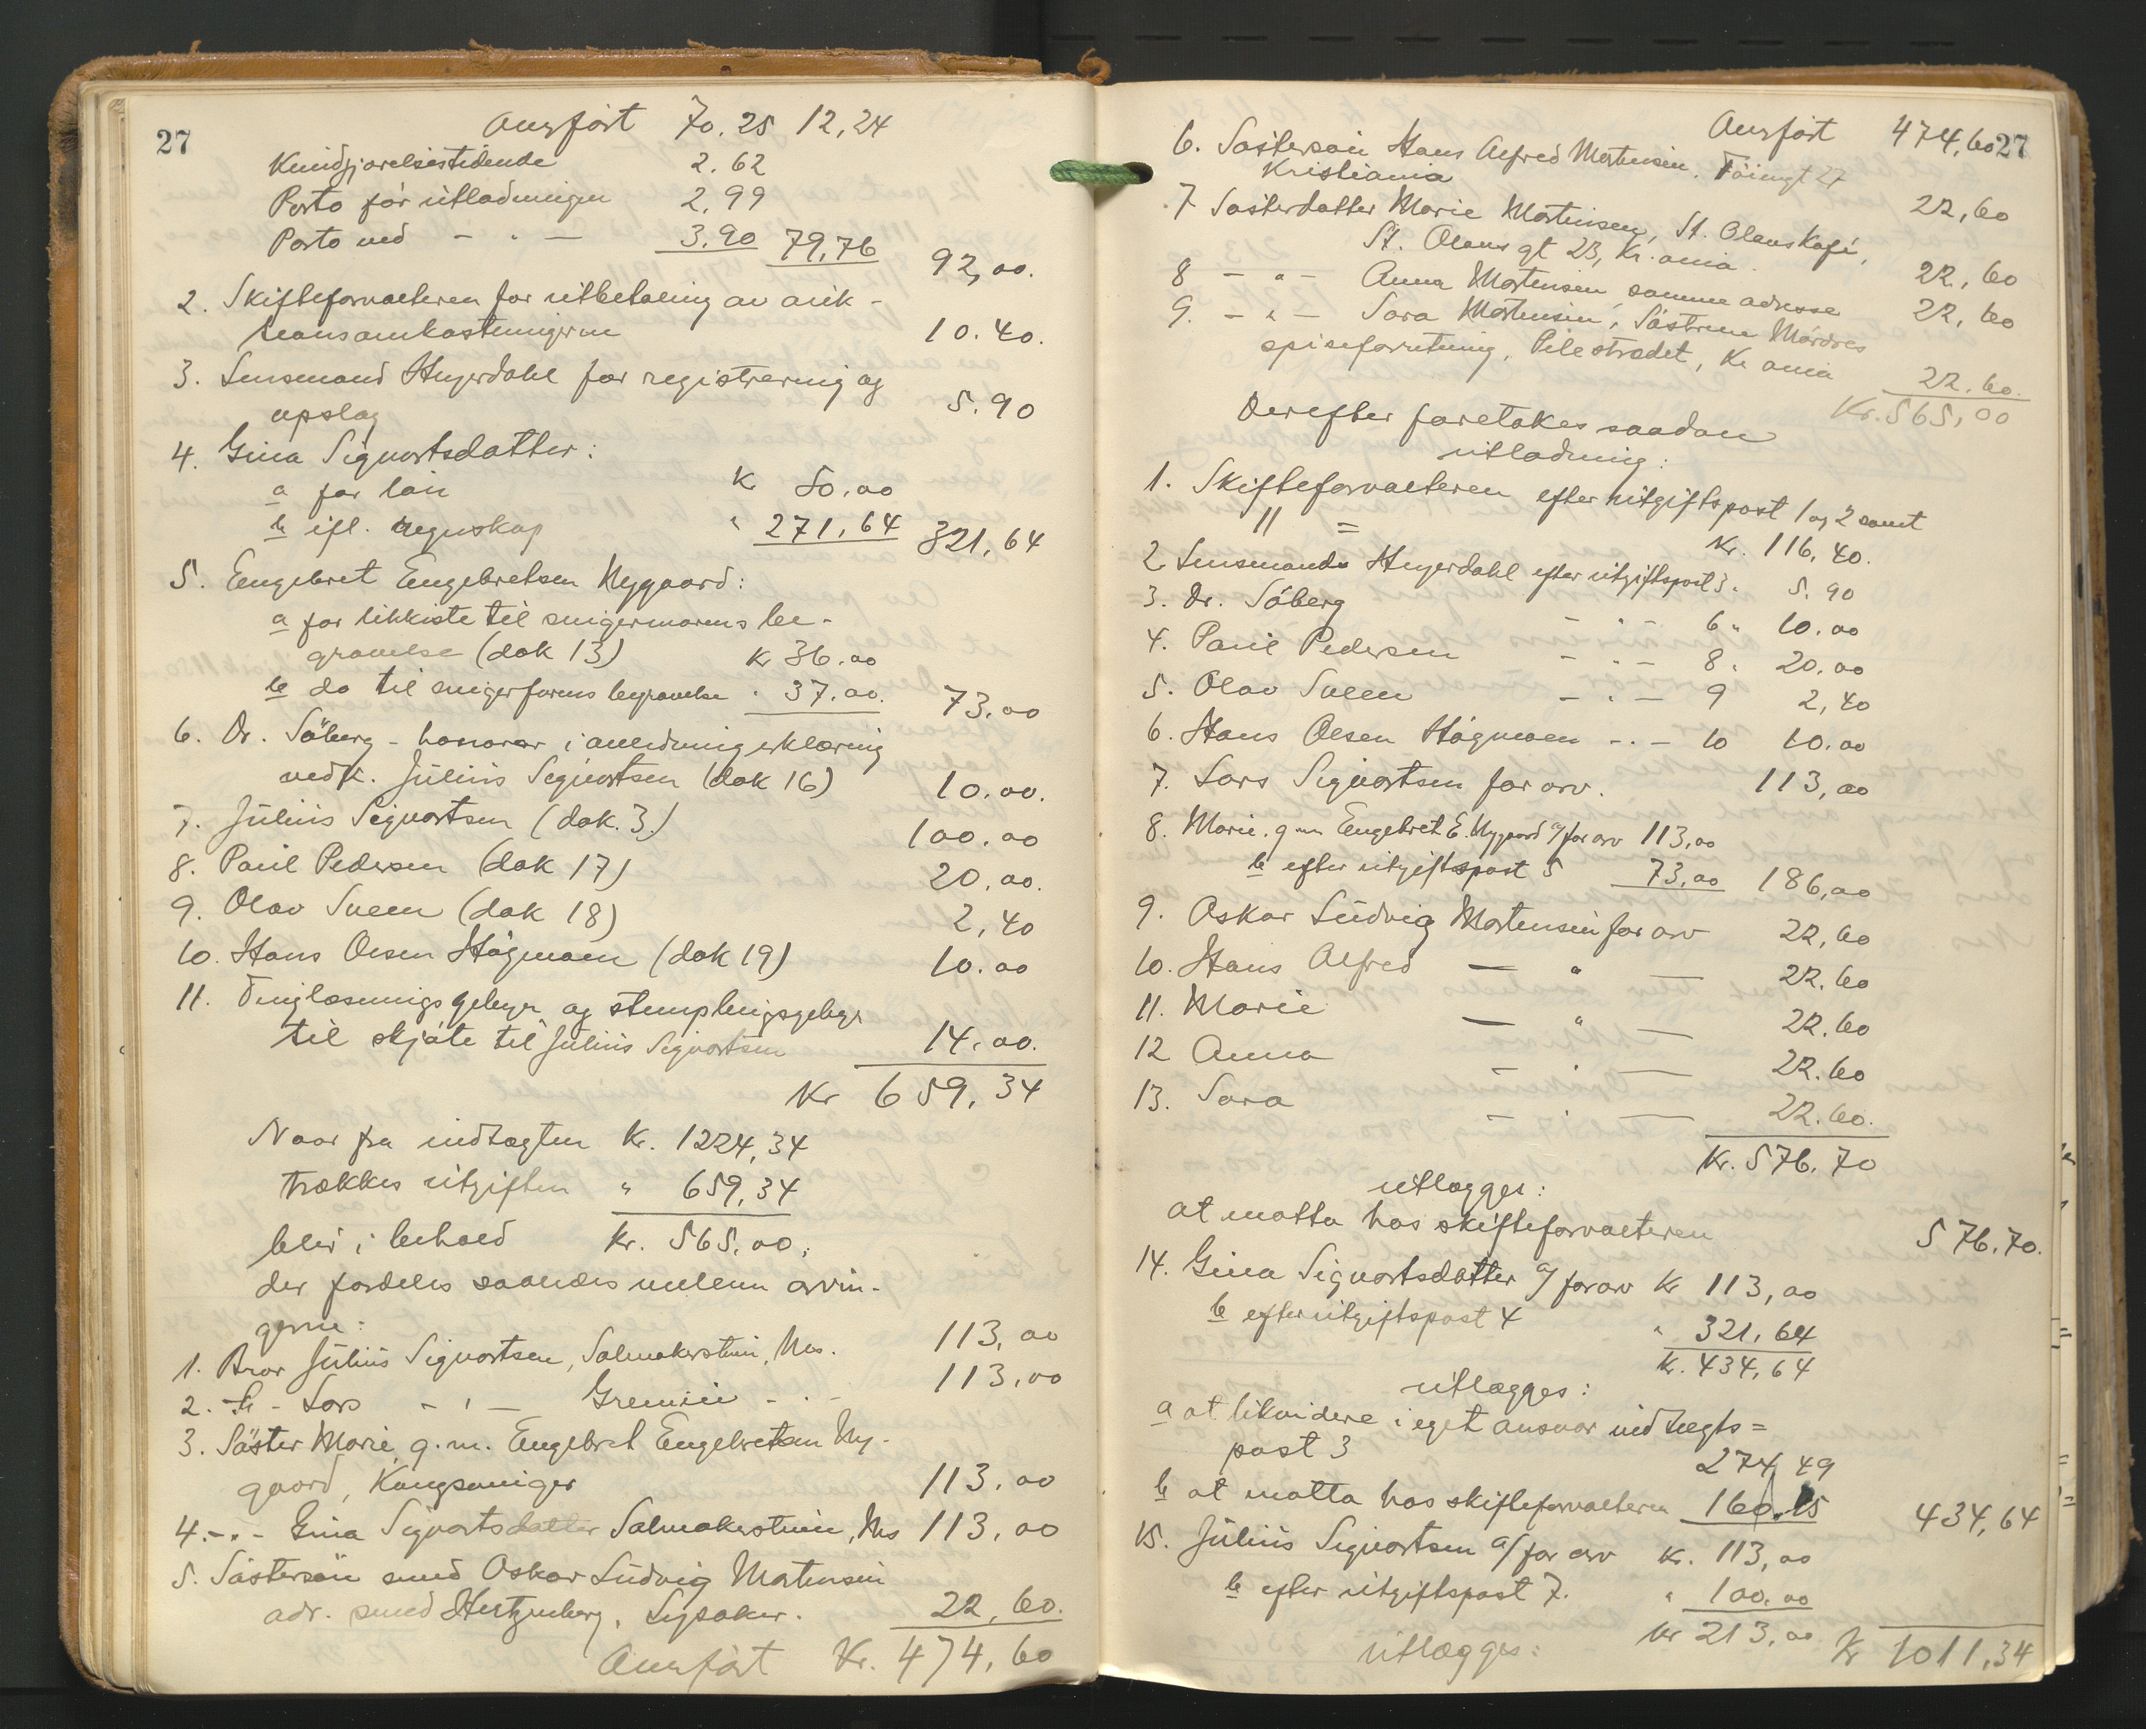 27
Overfört 70.25 12,24
Kundgjorelsestidende 2.62
Porto för utlodningen 2,99
Porto ved - " - 3.90 79,76 92,00.
2. Skifteforvalteren for utbetaling av auk-
tionsomkostningerne 10.40.
3. Lensmand Heyerdahl for registrering og
opslag 5.90
4. Gina Sigvartsdatter:
a for lön Kr 50.00
b ifl. regnskap " 271,64 321,64
5. Engebret Engebretsen Nygaard:
a for likkiste til svigermorens be-
gravelse (dok 13) Kr 36.00
b do til svigerfarens begravelse " 37.00. 73.00
6. Dr. Söberg - honorar i anledning erklæring
vedk. Julius Sigvartsen (dok 16) 10.00.
7. Julius Sigvartsen (dok. 3.) 100.00
8. Paul Pedersen (dok 17) 20.00.
9. Olav Sveen (dok 18) 2,40
10. Hans Olsen Högmoen (dok 19) 10.00
11. Tinglæsningsgebyr og stemplingsgebyr
til skjöte til Julius Sigvartsen 14.00.
Kr 659,34
Naar fra indtægten Kr. 1224,34
trækkes utgiften " 659,34
blir i behold Kr. 565,00.
der fordeles saaledes mellem arvin-
gerne:
1. Bror Julius Sigvartsen, Salmakerstuen, Nes. 113,00
2. -"- Lars - " - Gremlin - " - 113,00
3. Söster Marie, g.m. Engebret Engebretsen Ny-
gaard, Kongsvinger 113.00
4. -"- Gina Sigvartsdatter Salmakerstuen, Nes 113,00
5. Söstersön smed Oskar Ludvig Mortensen
adr. smed Hertzenberg, Lysaker. 22,60.
Overfört Kr. 474,60
27
Overfört 474,60
6. Söstersön Hans Alfred Mortensen. Töiengt 27
Kristiania 22,60
7 Sösterdatter Marie Mortensen, St. Olavs Kafé,
St. Olavs gt 23, Kr.ania. 22,60
8 - " - Anna Mortensen samme adresse 22,60
9. - " - Sara Mortensen, Söstrene Mördres
spiseforretning, Pilestrædet, Kr ania 22.60.
Kr. 565,00
Derefter foretokes saadan
utlodning:
1. Skifteforvalteren efter utgiftspost 1 og 2 samt
11 = Kr. 116,40.
2 Lensmand Heyerdahl efter utgiftspost 3 " 5.90
3. Dr. Söberg - " - 6 " 10.00
4. Paul Pedersen - " - 8 " 20.00
5. Olav Sveen - " - 9 2,40
6. Hans Olsen Högmoen - " - 10 10.00
7. Lars Sigvartsen for arv. 113,00
8. Marie, g.m. Engebret E. Nygaard a/ for arv 113,00
b efter utgiftspost 5 73,00 186,00
9. Oskar Ludvig Mortensen for arv 22,60
10. Hans Alfred — " — 22.60
11. Marie — " — 22.60
12 Anna - " — 22.60
13. Sara - " — 22.60.
Kr. 576,70
utlægges:
at motta hos skifteforvalteren 576.70.
14. Gina Sigvartsdatter a/ for arv Kr 113,00
b efter utgiftspost 4 " 321,64
Kr. 434,64
utlægges:
a at likvidere i eget ansvar indtægts=
post 3 274,49
b at motta hos skifteforvalteren 160.15 434,64
15. Julius Sigvartsen a/ for arv Kr. 113,00
b efter utgiftspost 7. " 100.00
Kr 213,00
utlægges: Kr 1011,34